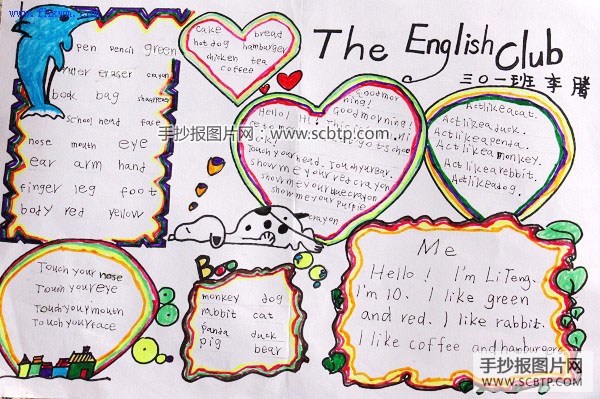 The English Club
三〇一班 李腾
pen pencil green
ruler eraser crayon
book bag sharpener
school head face
nose mouth eye
ear arm hand
finger leg foot
body red yellow
cake bread
hotdog hamburger
chicken tea
coffee
Good morning!
Hello! Hi! good morning!
Touch your head. Touch your ear.
show me your red crayon
show me your blue crayon
show me your purple
crayon
Act like a cat.
Act like a duck.
Act like a panda.
Act like a monkey.
Act like a rabbit.
Act like a dog.
手抄报图片网 www.scbtp.com
Touch your nose
Touch your eye
Touch your mouth
Touch your face
monkey dog
rabbit cat
panda duck
pig bear
Me
Hello! I'm Li Teng.
I'm 10. I like green
and red. I like rabbit.
I like coffee and hamburgers
手抄报图片网
WWW.SCBTP.COM